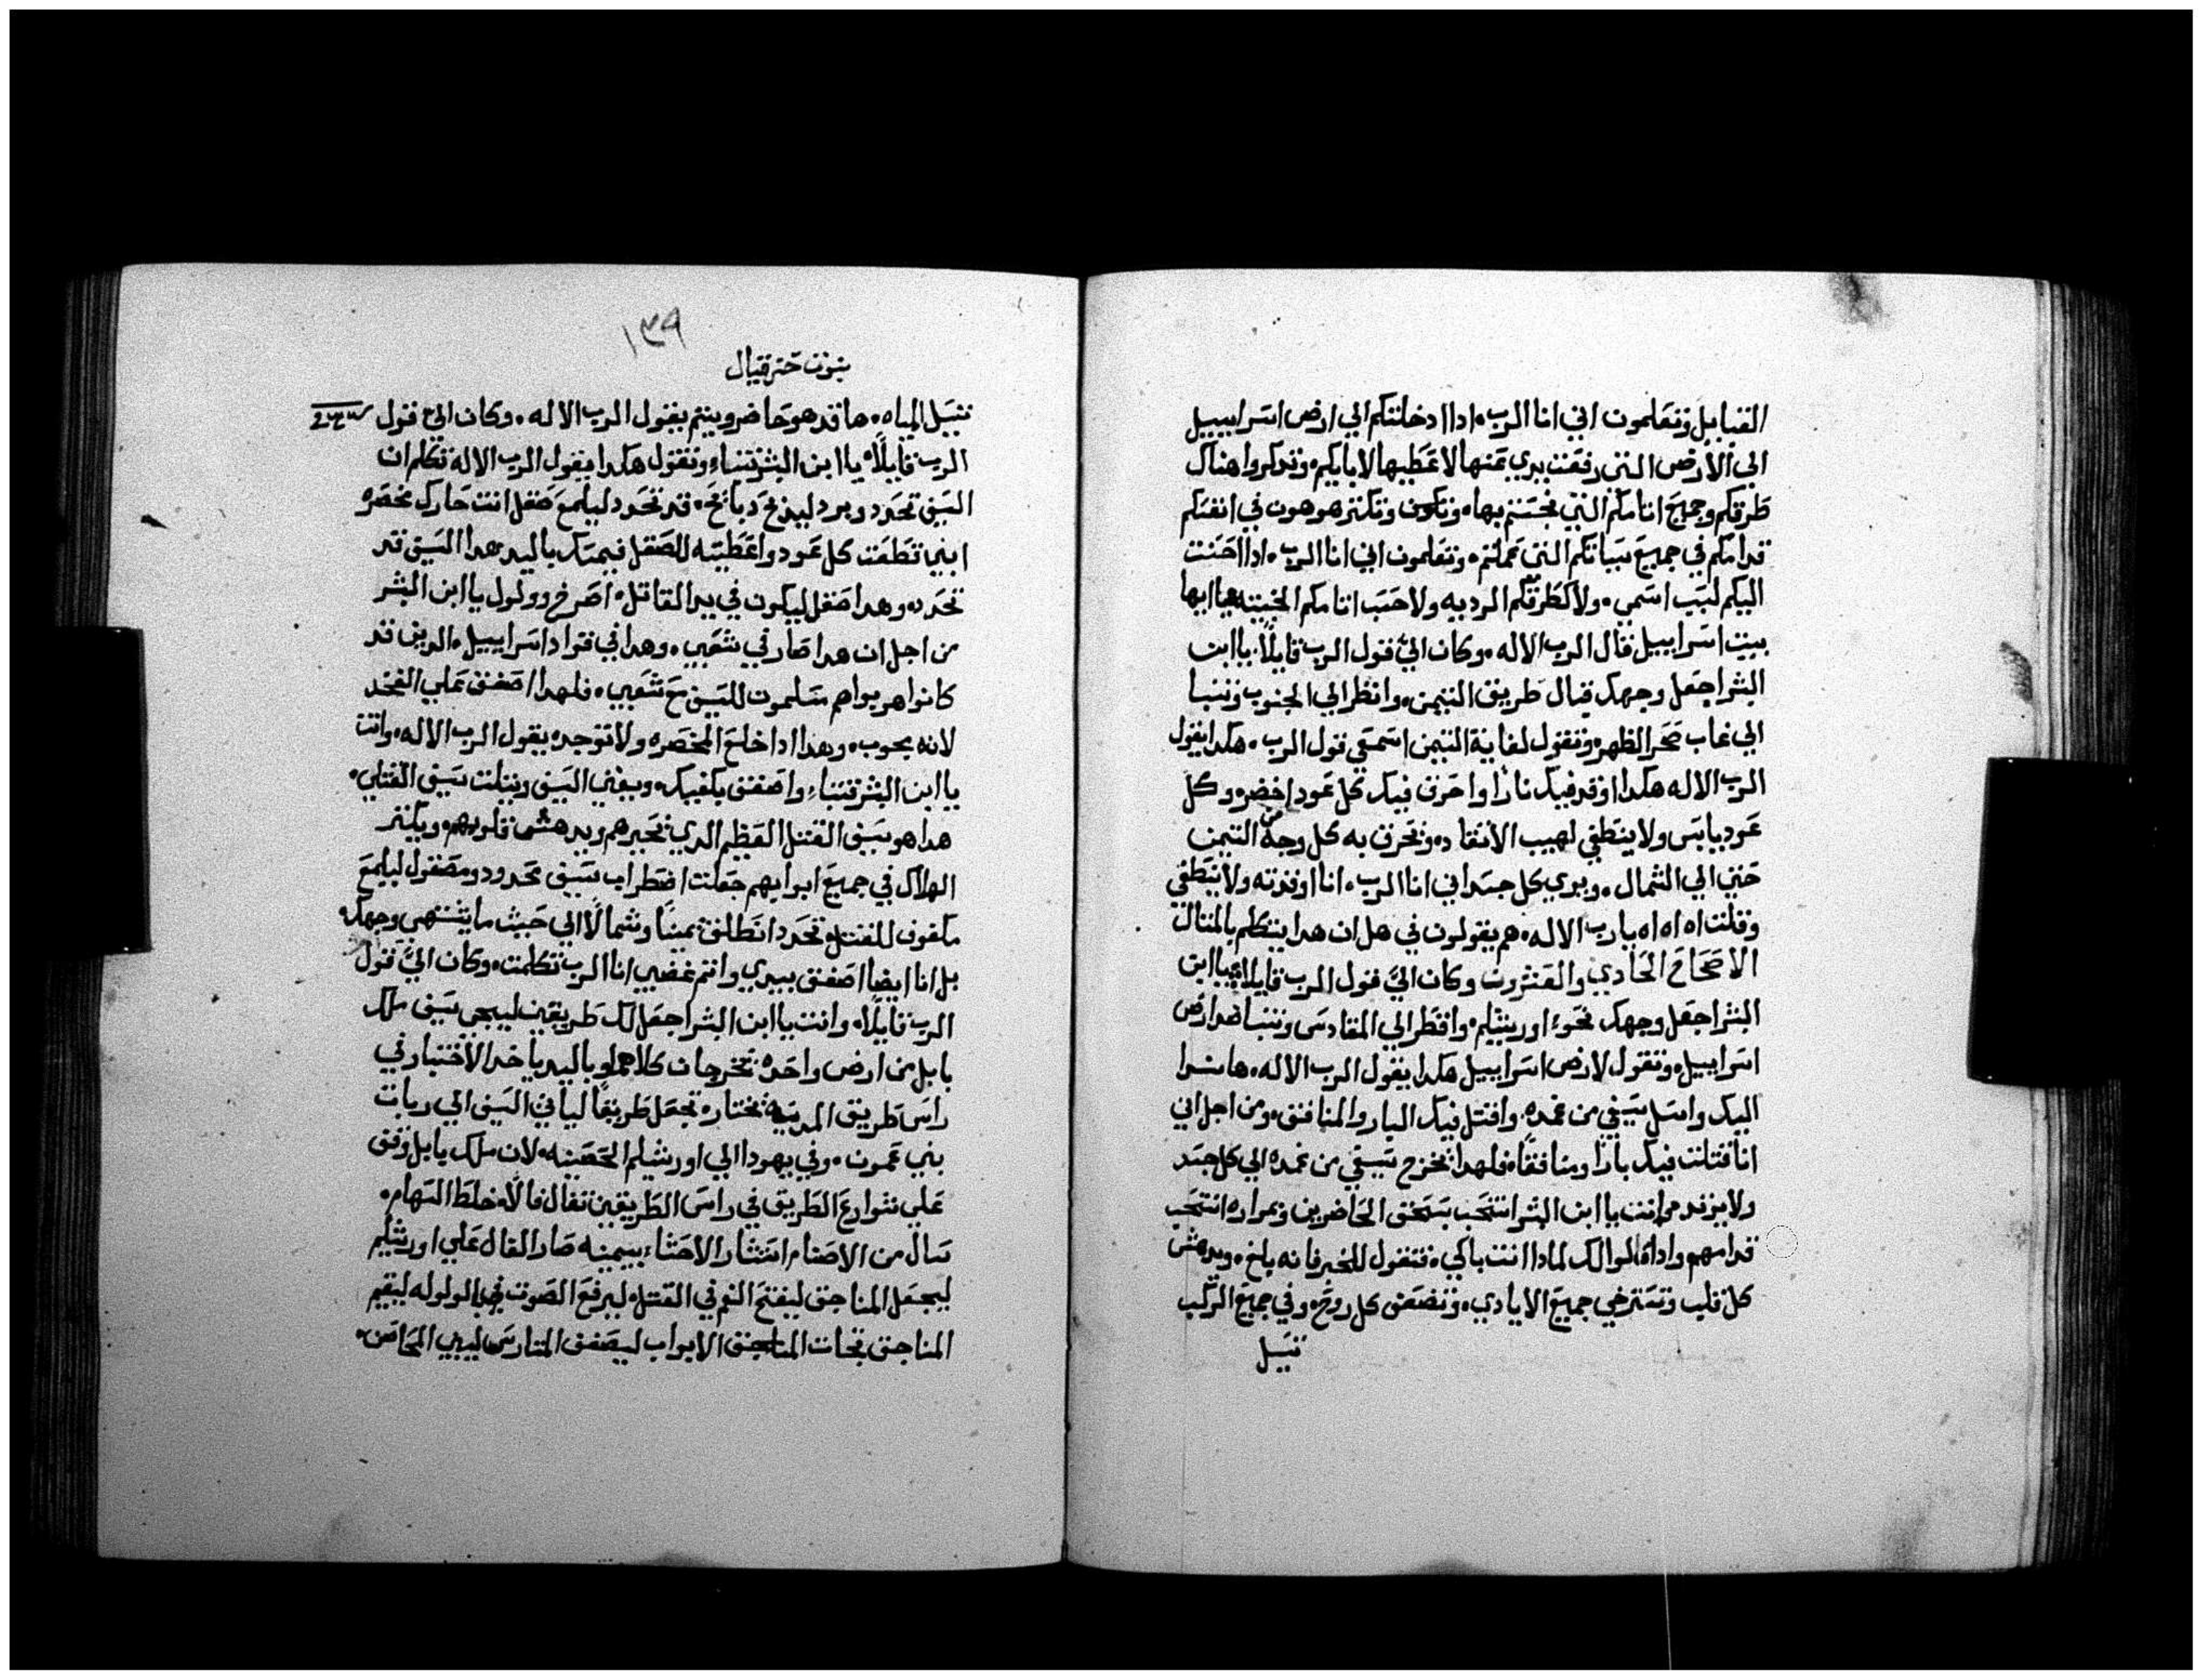 القبايل وتعلمون اني انا الرب ٠ ادا ادخلتكم الي ارض اسراييل
الي الارض التي رفعت يدي عنها لاعطيها لابايكم ٠ وتدكروا هناك
طرقكم وجميع اتامكم التي نجستم بها ٠ وتكون وتكتر هوهون في انفسكم
قدامكم في جميع سياتكم التي عملتم ٠ وتعلمون اني انا الرب ٠ ادا احسنت
اليكم لسبب اسمي ٠ ولا كطرقكم الرديه ولا حسب اتامكم الخبيته يا ايها
بيت اسراييل قال الرب الاله ٠ وكان الي قول الرب قايلاً يا ابن
البشر اجعل وجهك قبال طريق التيمن ٠ وانظر الي الجنوب وتنبا
الي غاب صحرا الظهره وتقول لغابة التيمن اسمعي قول الرب ٠ هكدا يقول
الرب الاله هكدا اوقد فيك نارا واحرق فيك كل عود اخضر ٠ وكل
عود يابس ولا ينطفي لهيب الاتقاده وتحرق به كل وجه من التيمن
حتي الي الشمال ٠ ويري كل جسد اني انا الرب ٠ انا اوقدته ولا تنطفي
وقلت اه اه اه يارب الاله ٠ هم يقولون في هل ان هدا يتكلم بالمتال
الاصحاح الحادي والعشرون وكان الي قول الرب قايلا يا ابن
البشر اجعل وجهك نحو اورشليم ٠ واقطر الي المقادس وتنبا ضد ارض
اسراييل ٠ وتقول لارض اسراييل هكدا يقول الرب الاله ٠ ها مندا
اليك واسل سيفي من غمده ٠ واقتل فيك البار والمنافق ٠ ومن اجل اني
انا قتلت فيك بارا ومنافقا ٠ فلهدا يخرج سيفي من غمده الي كل جسد
ولا يرتد ٠ وانت يا ابن البشر انتحب بسحق الحاضرين وبمراره انتحب
قدامهم وادا قالوا لك لمادا انت باكي ٠ فتقول للخبر فانه ياخ ٠ ويدهش
كل قلب وتسترخي جميع الايادي ٠ وتضعف كل روح ٠ وفي جميع الركب
تسيل
١٣٩
نبوت حزقيال
تسيل المياه ٠ ها قد هو حاضر ويتم يقول الرب الاله ٠ وكان الي قول
الرب قايلاً يا ابن البشر تنباء وتقول هكدا يقول الرب الاله تكلم ان
السيف تحدد وبرد ليدبح دبايح ٠ قد تحدد ليلمع صقل انت حارك مخصرة
ابني تطفت كل عود واعطيته للصقل فيمسك باليد هدا السيف قد
تحدد ٠ وهدا صقل ليكون في يد القاتل ٠ اصرخ وولول يا ابن البشر
من اجل ان هدا صار في شعبي ٠ وهدا في قواد اسراييل ٠ الدين قد
كانوا هربوا هم سلمون للسيف مع شعبي ٠ فلهدا اصفق علي الفخد
لانه مجوب ٠ وهدا ادا خلع المخصره ولا توجد ٠ يقول الرب الاله ٠ وانت
يا ابن البشر تنباء واصفق بكفيك ٠ ويتني السيف ويتلت سيف القتلي ٠
هدا هو سيف القتل العظيم الدي تحيرهم ويدهش قلوبهم ٠ ويكتر
الهلاك في جميع ابوابهم جعلت اضطراب سيف محدود ومصقول ليلمع
ملفوف للقتل ٠ تحدد انطلق يميناً وشمالاً الي حيث ما يشتهي وجهك ٠
بل انا ايضا اصفق بيدي واتم غضبي انا الرب تكلمت ٠ وكان الي قول
الرب قايلاً ٠ وانت يا ابن البشر اجعل لك طريقين ليجي سيف ملك
بابل من ارض واحده تخرجان كلاهما وباليد ياخد الاختبار في
راس طريق المدينه يختاره تجعل طريقاً لياتي السيف الي ربات
بني عمون ٠ وفي يهودا الي اورشليم الحصينه ٠ لان ملك بابل وقف
علي شوارع الطريق في راس الطريقين تفال فالاً ٠ خلط السهام ٠
سال من الاصنام استشار الاحشاء بيمينه صار الفال علي اورشليم
ليجعل المناجق ليفتح الفم في القتل ليرفع الصوت في الولوله ليقيم
المناجق تجات المناجق الابواب ليصفف المتارس ليبني المحاصن ٠